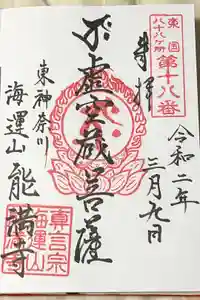 東国
八十八ヶ所
第十八番
奉拝
令和二年
三月九日
虚空蔵菩薩
東神奈川
海運山
能満寺
真言宗
海運山